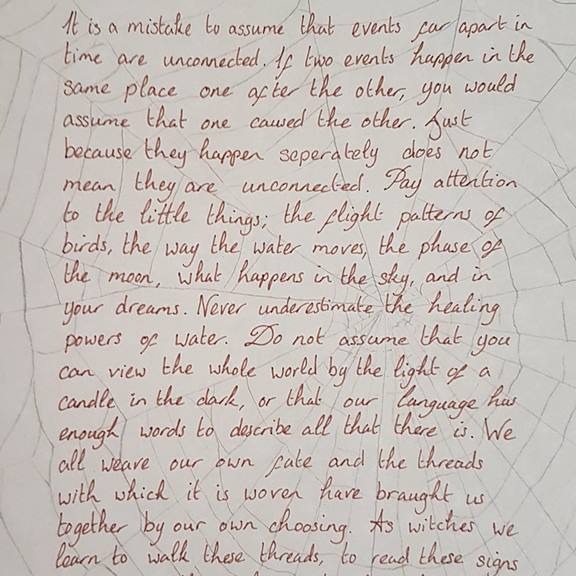 It is a mistake to assume that events far apart in
time are unconnected. If two events happen in the
same place one after the other, you would
assume that one caused the other. Just
because they happen seperately does not
mean they are unconnected. Pay attention
to the little things; the flight patterns of
birds, the way the water moves, the phase of
the moon, what happens in the sky, and in
your dreams. Never underestimate the healing
powers of water. Do not assume that you
can view the whole world by the light of a
candle in the dark, or that our language has
enough words to describe all that there is. We
all weave our own fate and the threads
with which it is woven have braught us
together by our own choosing. As witches we
learn to walk these threads, to read these signs